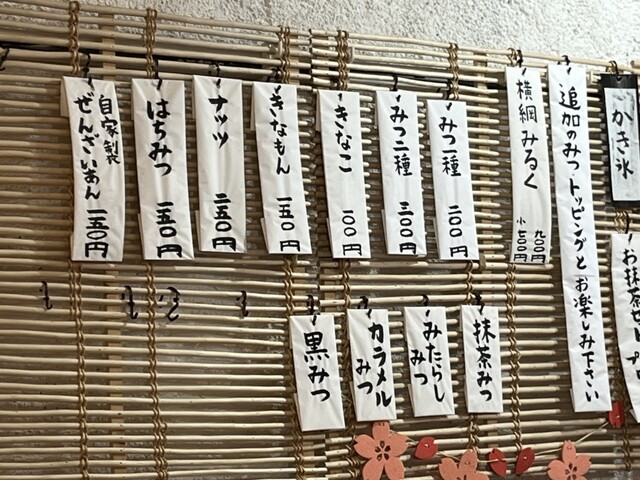 かき氷
追加のみつトッピングとお楽しみ下さい
横綱みるく
九〇〇円
小五〇〇円
みつ一種
二〇〇円
みつ二種
三〇〇円
きなこ
一〇〇円
きなもん
一五〇円
ナッツ
二五〇円
はちみつ
一五〇円
自家製
ぜんざいあん
一五〇円
抹茶みつ
みたらしみつ
カラメルみつ
黒みつ